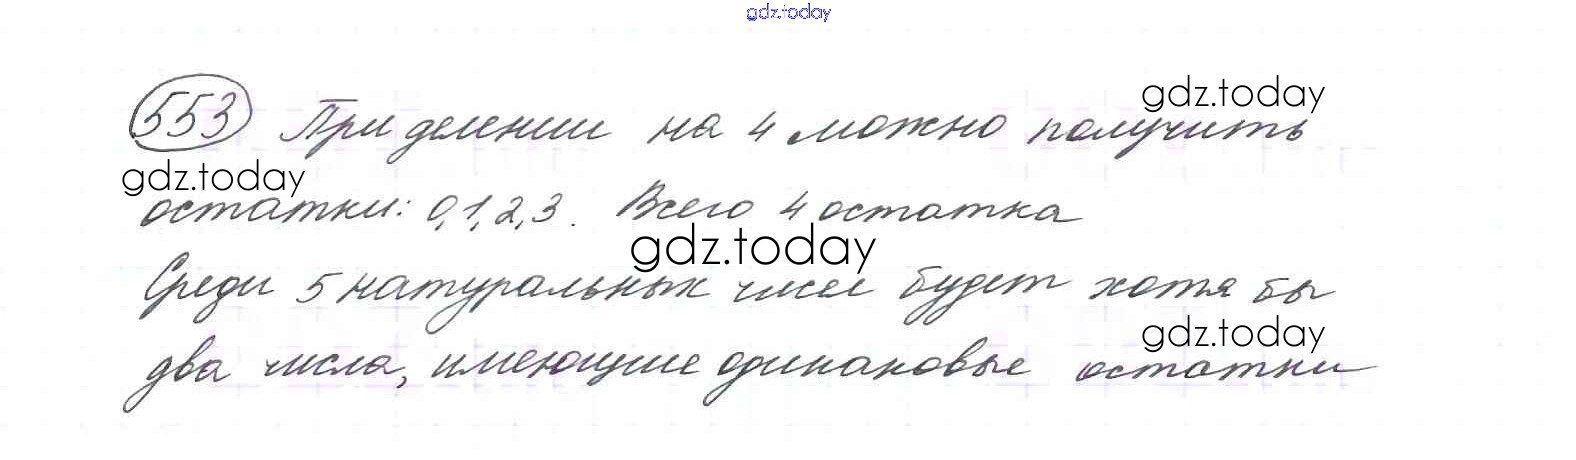 gdz.today
553 При делении на 4 можно получить
gdz.today
gdz.today
остатки: 0,1,2,3. Всего 4 остатка
gdz.today
Среди 5 натуральных чисел будет хотя бы
gdz.today
два числа, имеющие одинаковые остатки